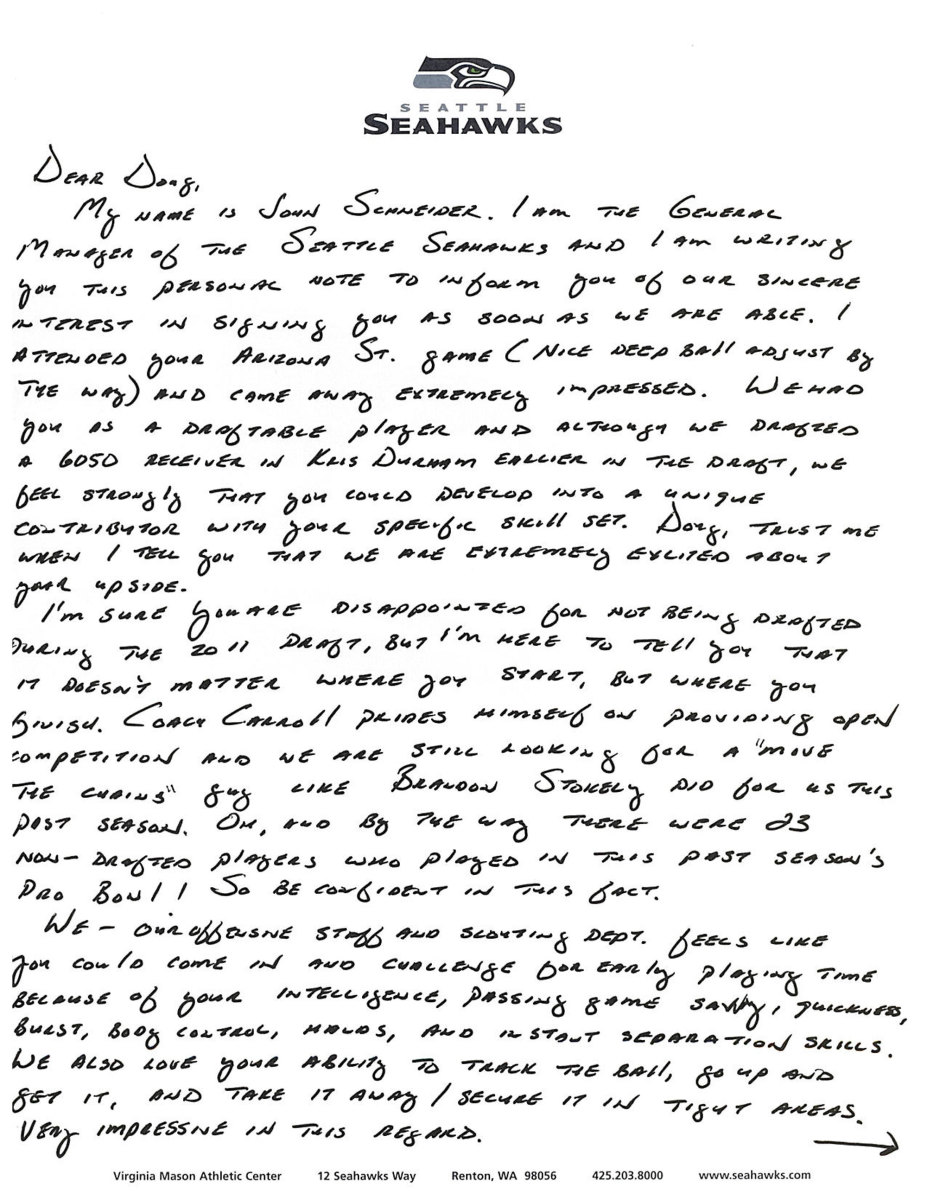 SEATTLE
SEAHAWKS
Dear Doug,
My name is John Schneider. I am the General
Manager of the Seattle Seahawks and I am writing
you this personal note to inform you of our sincere
interest in signing you as soon as we are able. I
attended your Arizona St. game (Nice deep ball adjust by
the way) and came away extremely impressed. We had
you as a draftable player and although we drafted
a 6050 receiver in Kris Durham earlier in the draft, we
feel strongly that you could develop into a unique
contributor with your specific skill set. Doug, trust me
when I tell you that we are extremely excited about
your upside.
I'm sure you are disappointed for not being drafted
during the 2011 draft, but I'm here to tell you that
it doesn't matter where you start, but where you
finish. Coach Carroll prides himself on providing open
competition and we are still looking for a "move
the chains" guy like Brandon Stokely did for us this
past season. Oh, and by the way there were 23
non-drafted players who played in this past season's
Pro Bowl! So be confident in this fact.
We - our offensive staff and scouting dept. feels like
you could come in and challenge for early playing time
because of your intelligence, passing game savvy, quickness,
burst, body control, hands, and instant separation skills.
We also love your ability to track the ball, go up and
get it, and take it away / secure it in tight areas.
Very impressive in this regard.
Virginia Mason Athletic Center 12 Seahawks Way Renton, WA 98056 425.203.8000 www.seahawks.com